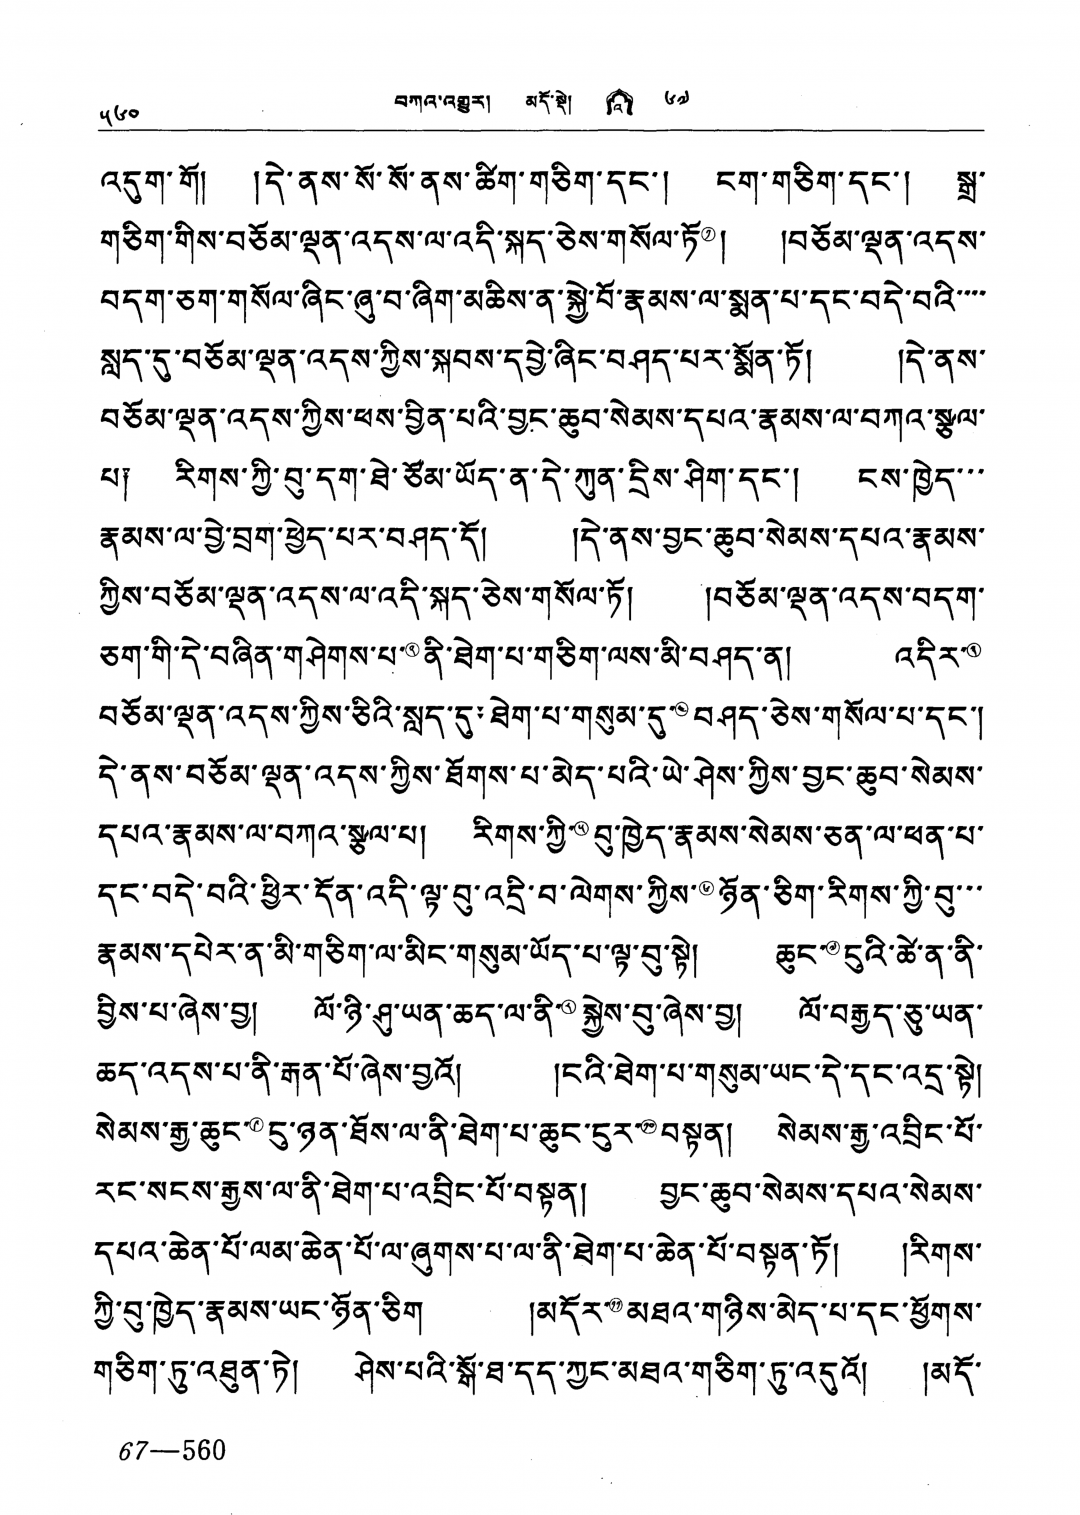 ༥༦༠ བཀའ་འགྱུར། མདོ་སྡེ། འ ༦༧
འདུག་གོ། །དེ་ནས་སོ་སོ་ནས་ཚིག་གཅིག་དང་། ངག་གཅིག་དང་། སྒྲ་
གཅིག་གིས་བཅོམ་ལྡན་འདས་ལ་འདི་སྐད་ཅེས་གསོལ་ཏོ①། །བཅོམ་ལྡན་འདས་
བདག་ཅག་གསོལ་ཞིང་ཞུ་བ་ཞིག་མཆིས་ན་སྐྱེ་བོ་རྣམས་ལ་སྨན་པ་དང་བདེ་བའི་····
སླད་དུ་བཅོམ་ལྡན་འདས་ཀྱིས་སྐབས་དབྱེ་ཞིང་བཤད་པར་སྨོན་ཏོ། །དེ་ནས་
བཅོམ་ལྡན་འདས་ཀྱིས་ཕས་བྱིན་པའི་བྱང་ཆུབ་སེམས་དཔའ་རྣམས་ལ་བཀའ་སྩལ་
པ༑ རིགས་ཀྱི་བུ་དག་ཐེ་ཙོམ་ཡོད་ན་དེ་ཀུན་དྲིས་ཤིག་དང་། ངས་ཁྱེད་···
རྣམས་ལ་བྱེ་བྲག་ཕྱེད་པར་བཤད་དོ། །དེ་ནས་བྱང་ཆུབ་སེམས་དཔའ་རྣམས་
ཀྱིས་བཅོམ་ལྡན་འདས་ལ་འདི་སྐད་ཅེས་གསོལ་ཏོ། །བཅོམ་ལྡན་འདས་བདག་
ཅག་གི་དེ་བཞིན་གཤེགས་པ་②ནི་ཐེག་པ་གཅིག་ལས་མི་བཤད་ན། འདིར་③
བཅོམ་ལྡན་འདས་ཀྱིས་ཅིའི་སླད་དུ་ཐེག་པ་གསུམ་དུ་④བཤད་ཅེས་གསོལ་པ་དང་།
དེ་ནས་བཅོམ་ལྡན་འདས་ཀྱིས་ཐོགས་པ་མེད་པའི་ཡེ་ཤེས་ཀྱིས་བྱང་ཆུབ་སེམས་
དཔའ་རྣམས་ལ་བཀའ་སྩལ་པ། རིགས་ཀྱི་⑤བུ་ཁྱེད་རྣམས་སེམས་ཅན་ལ་ཕན་པ་
དང་བདེ་བའི་ཕྱིར་དོན་འདི་ལྟ་བུ་འདྲི་བ་ལེགས་ཀྱིས་⑥ཉོན་ཅིག་རིགས་ཀྱི་བུ་···
རྣམས་དཔེར་ན་མི་གཅིག་ལ་མིང་གསུམ་ཡོད་པ་ལྟ་བུ་སྟེ། ཆུང་⑦ངུའི་ཚེ་ན་ནི་
བྱིས་པ་ཞེས་བྱ། ལོ་ཉི་ཤུ་ཡན་ཆད་ལ་ནི་⑧སྐྱེས་བུ་ཞེས་བྱ། ལོ་བརྒྱད་ཅུ་ཡན་
ཆད་འདས་པ་ནི་རྒན་པོ་ཞེས་བྱའོ། །ངའི་ཐེག་པ་གསུམ་ཡང་དེ་དང་འདྲ་སྟེ།
སེམས་རྒྱ་ཆུང་⑨ངུ་ཉན་ཐོས་ལ་ནི་ཐེག་པ་ཆུང་ངུར་⑩བསྟན། སེམས་རྒྱ་འབྲིང་པོ་
རང་སངས་རྒྱས་ལ་ནི་ཐེག་པ་འབྲིང་པོ་བསྟན། བྱང་ཆུབ་སེམས་དཔའ་སེམས་
དཔའ་ཆེན་པོ་ལམ་ཆེན་པོ་ལ་ཞུགས་པ་ལ་ནི་ཐེག་པ་ཆེན་པོ་བསྟན་ཏོ། །རིགས་
ཀྱི་བུ་ཁྱེད་རྣམས་ཡང་ཉོན་ཅིག །མདོར་⑪མཐའ་གཉིས་མེད་པ་དང་ཕྱོགས་
གཅིག་ཏུ་འཐུན་ཏེ། ཤེས་པའི་སྒོ་ཐ་དད་ཀྱང་མཐའ་གཅིག་ཏུ་འདུའོ། །མདོ་
67—560